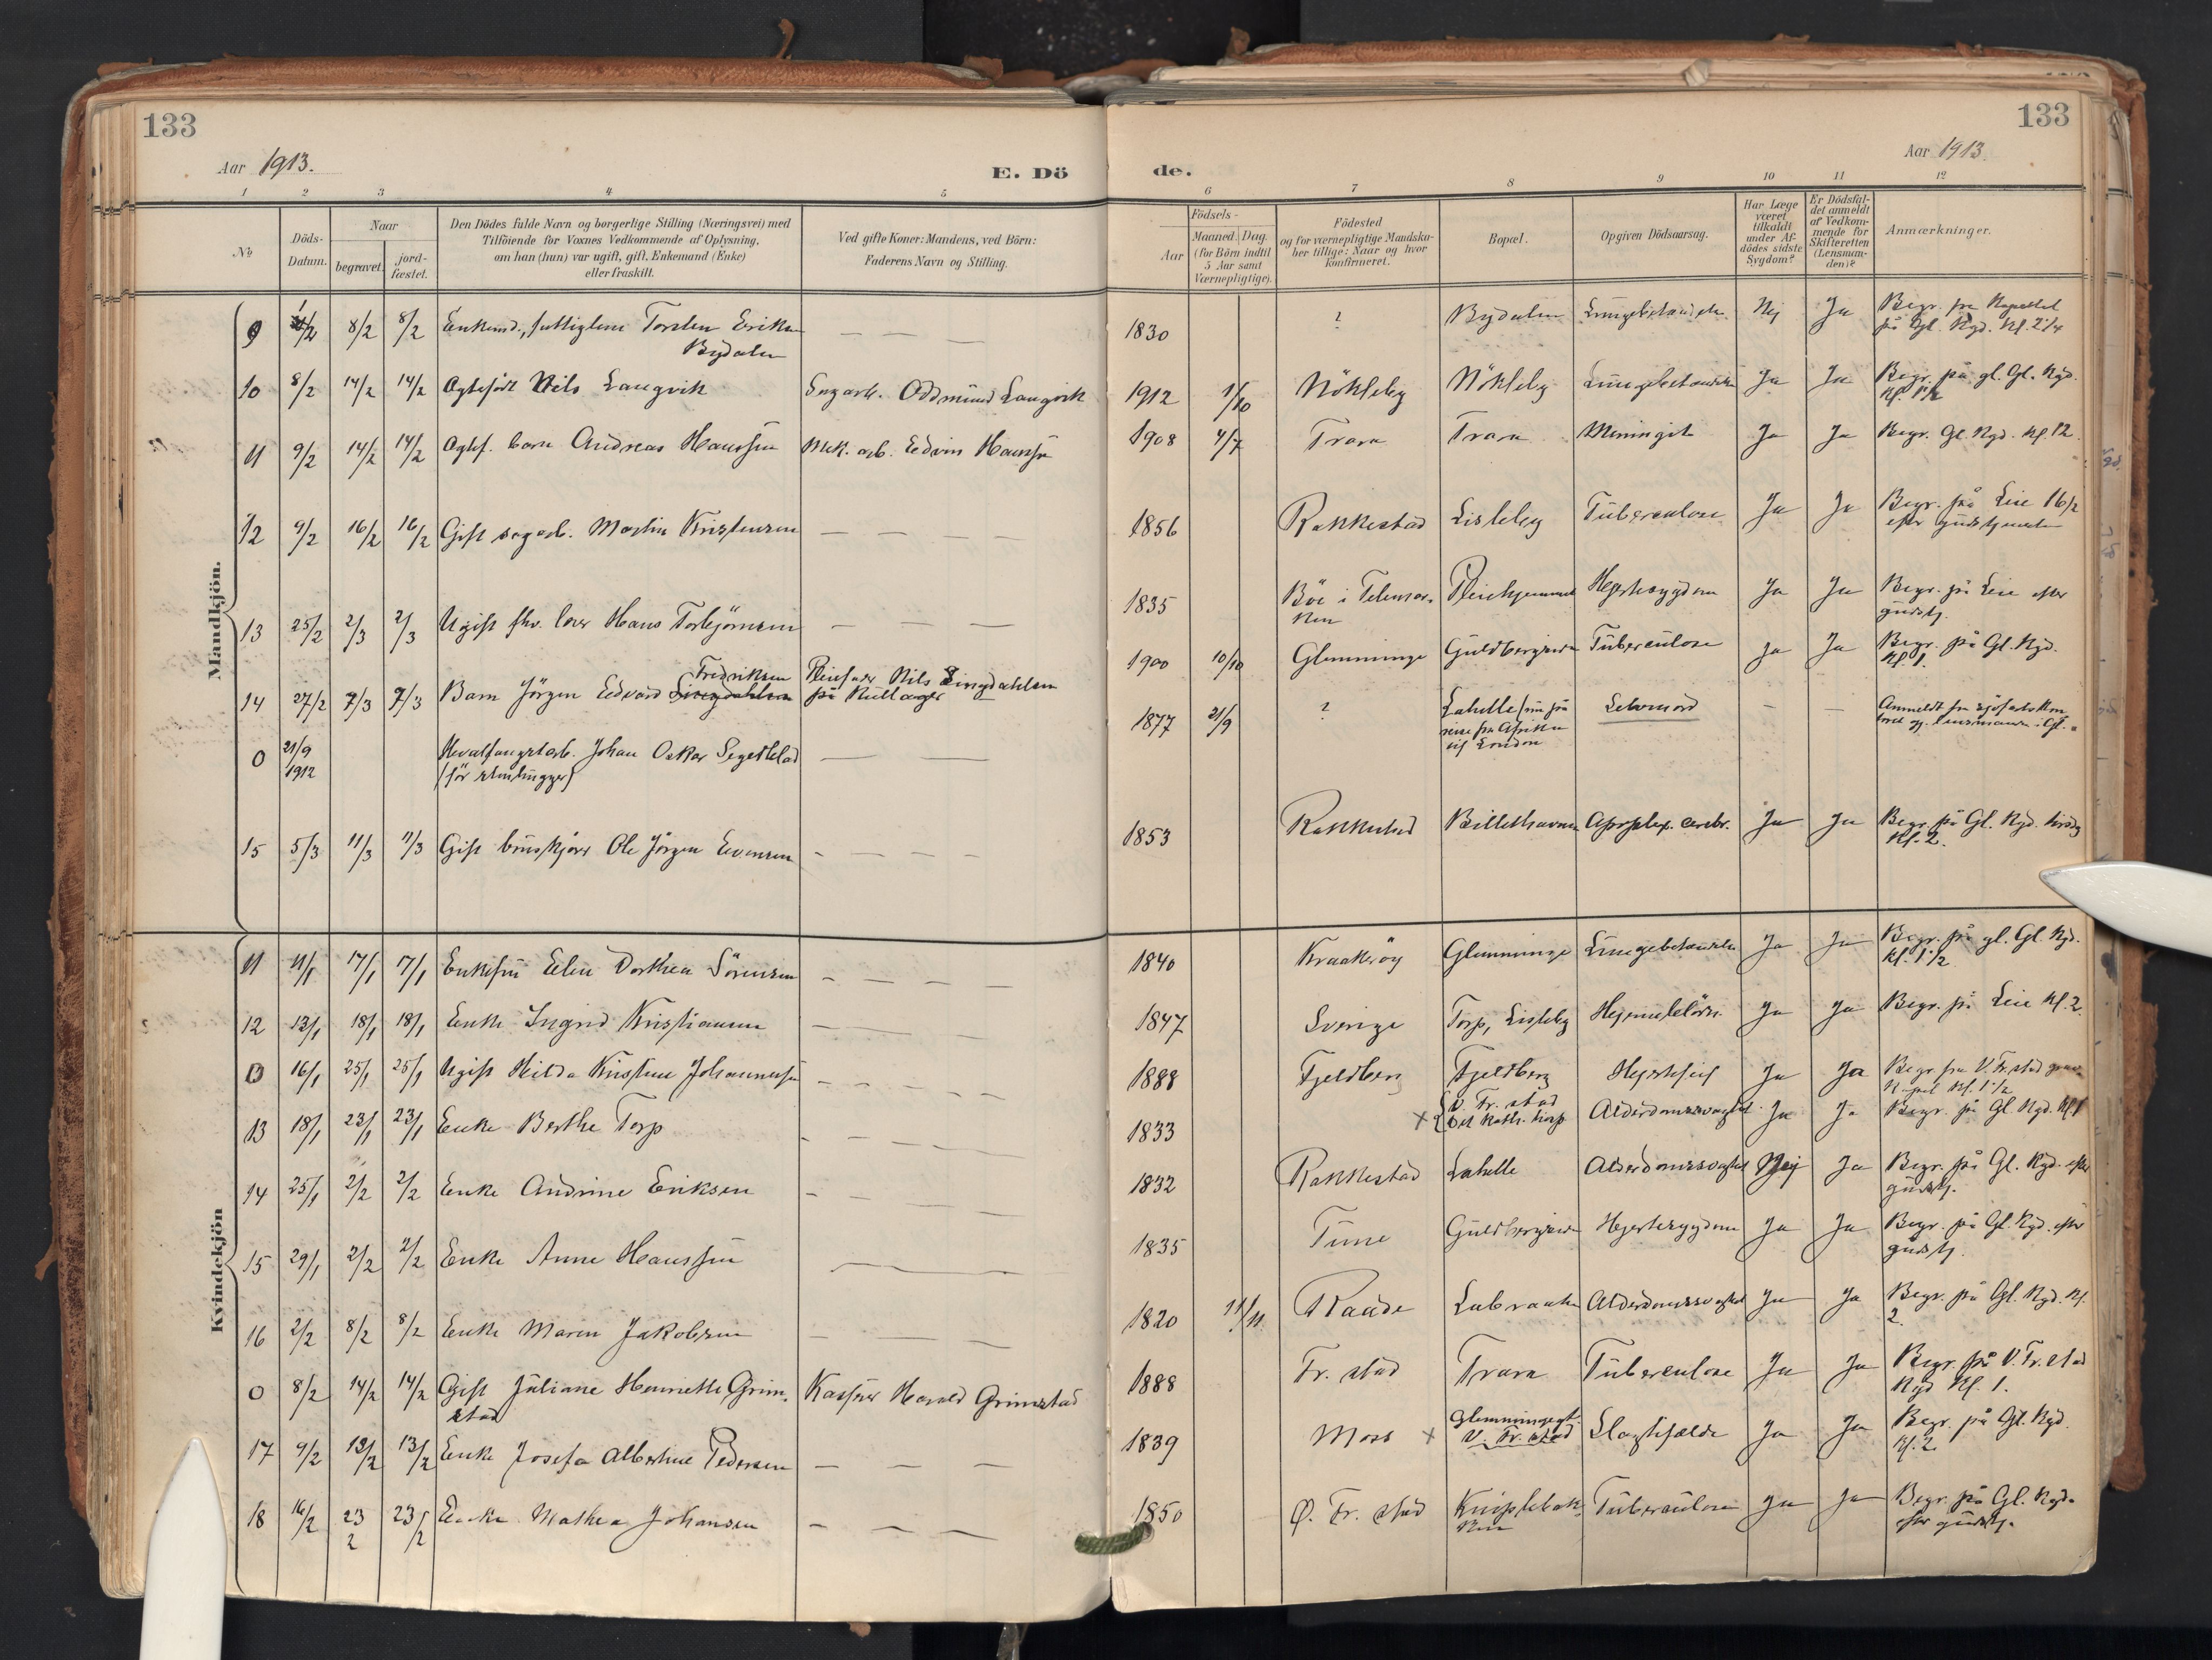 133
133
Aar 1913.
E. Dö
de.
Aar 1913.
1 2 3 4 5 6 7 8 9 10 11 12
No
Döds-
Datum.
Naar
begravet.
jord-
fæstet.
Den Dödes fulde Navn og borgerlige Stilling (Næringsvei) med
Tilföiende for Voxnes Vedkommende af Oplysning,
om han (hun) var ugift, gift, Enkemand (Enke)
eller fraskilt.
Ved gifte Koner: Mandens, ved Börn:
Faderens Navn og Stilling.
Födsels-
Aar
Maaned. Dag.
(for Börn indtil
5 Aar samt
Værnepligtige).
Födested
og for værnepligtige Mandska-
ber tillige: Naar og hvor
konfirmeret.
Bopæl.
Opgiven Dödsaarsag.
Har Læge
været
tilkaldt
under Af-
dödes sidste
Sygdom?
Er Dödsfal-
det anmeldt
af Vedkom-
mende for
Skifteretten
(Lensman-
den)?
Anmærkninger.
Mandkjön.
9 8/2 8/2 Torsten Eriksen 1830 ? Bydalen Nej Ja
Bydalen
på Gl. Kgd. Kl. 2 1/4
10 8/2 14/2 14/2 Nils Langvik Oddmund Langvik 1912 1/10 Nökleby Nökleby Ja Ja Begr. på gl. Gl. Kgd.
Kl. 1 1/2
11 9/2 14/2 14/2 Andreas Hanssen Mek. arb. Edvin Hanssen 1908 4/7 Trara Trara Meningit Ja Ja Begr. Gl. Kgd. Kl. 12.
12 9/2 16/2 16/2 Gift sagarb. Martin Kristensen — — — — 1856 Rakkestad Lisleby Tuberculose Ja Ja Begr. på Leie 16/2
efter gudstjenesten
13 25/2 2/3 2/3 Ugift Hans Torbjörnsen — — — 1835 Böe i Telemar- Pleiehjemmet Hjertesygdom Ja Ja Begr. på Leie efter
ken
gudstj.
Fredriksen
14 27/2 7/3 7/3 Barn Jörgen Edvard Lingdahlen Pleiefader Nils Lingdahlen 1900 10/10 Glemminge Guldbergsveien Tuberculose Ja Ja Begr. på Gl. Kgd.
Kl. 1.
0 21/9 1912 Hvalfangstarb. Johan Oskar Segelblad — — 1877 21/9 ? Lahelle (nu på Selvmord — — Anmeldt fra sjöfartskon-
(för stenhugger)
reise fra Afrika
til London
15 5/3 11/3 11/3 Gift Ole Jörgen Evensen — — — — 1853 Rakkestad Apoplex. cerebr. Ja Ja Begr. på Gl. Kgd. tirsdag
Kl. 2.
Kvindekjön
11 11/1 17/1 17/1 Enkefru Elen Dorthea Sörensen — — — — 1840 Kraakeröy Glemminge Lungebetændelse Ja Ja Begr. på gl. Gl. Kgd.
Kl. 1 1/2
12 13/1 18/1 18/1 Enke Ingrid Kristiansen 1847 Sverige Torp, Lisleby Ja Ja Begr. på Leie Kl. 2.
0 16/1 25/1 25/1 Ugift Hilda Kristine Johannesen 1888 Fjeldberg Fjeldberg Hjertefeil Ja Ja
Kl. 1 1/2
13 18/1 23/1 23/1 Enke Berthe Torp 1833 × V. Fr. stad Alderdomssvaghed Ja Ja Begr. på Gl. Kgd. Kl. 1
Det kath. hosp.
14 25/1 2/2 2/2 Enke Andrine Eriksen 1832 Rakkestad Lahelle Alderdomssvaghed Nej Ja Begr. på Gl. Kgd. efter
gudstj.
15 29/1 2/2 2/2 Enke Anne Hanssen 1835 Tune Guldbergsveien Hjertesygdom Ja Ja Begr. på Gl. Kgd. efter
gudstj.
16 2/2 8/2 8/2 Enke Maren Jakobsen 1820 11/11 Raade Labraaten Alderdomssvaghed Ja Ja Begr. på Gl. Kgd. Kl.
2.
0 8/2 14/2 14/2 Gift Juliane Henriette Grim- Harald Grimstad 1888 Fr. stad Trara Tuberculose Ja Ja Begr. på V. Fr. stad
stad
Kgd Kl. 1.
17 9/2 13/2 13/2 Enke Josefa Albertine Pedersen — — — 1839 Moss × Glemmingegt. Slagtilfælde Ja Ja Begr. på Gl. Kgd.
V. Fr. stad
Kl. 2.
18 16/2 23/2 23/2 Enke Mathea Johansen — — — 1850 Ø. Fr. stad Tuberculose Ja Ja Begr. på Gl. Kgd.
efter gudstj.